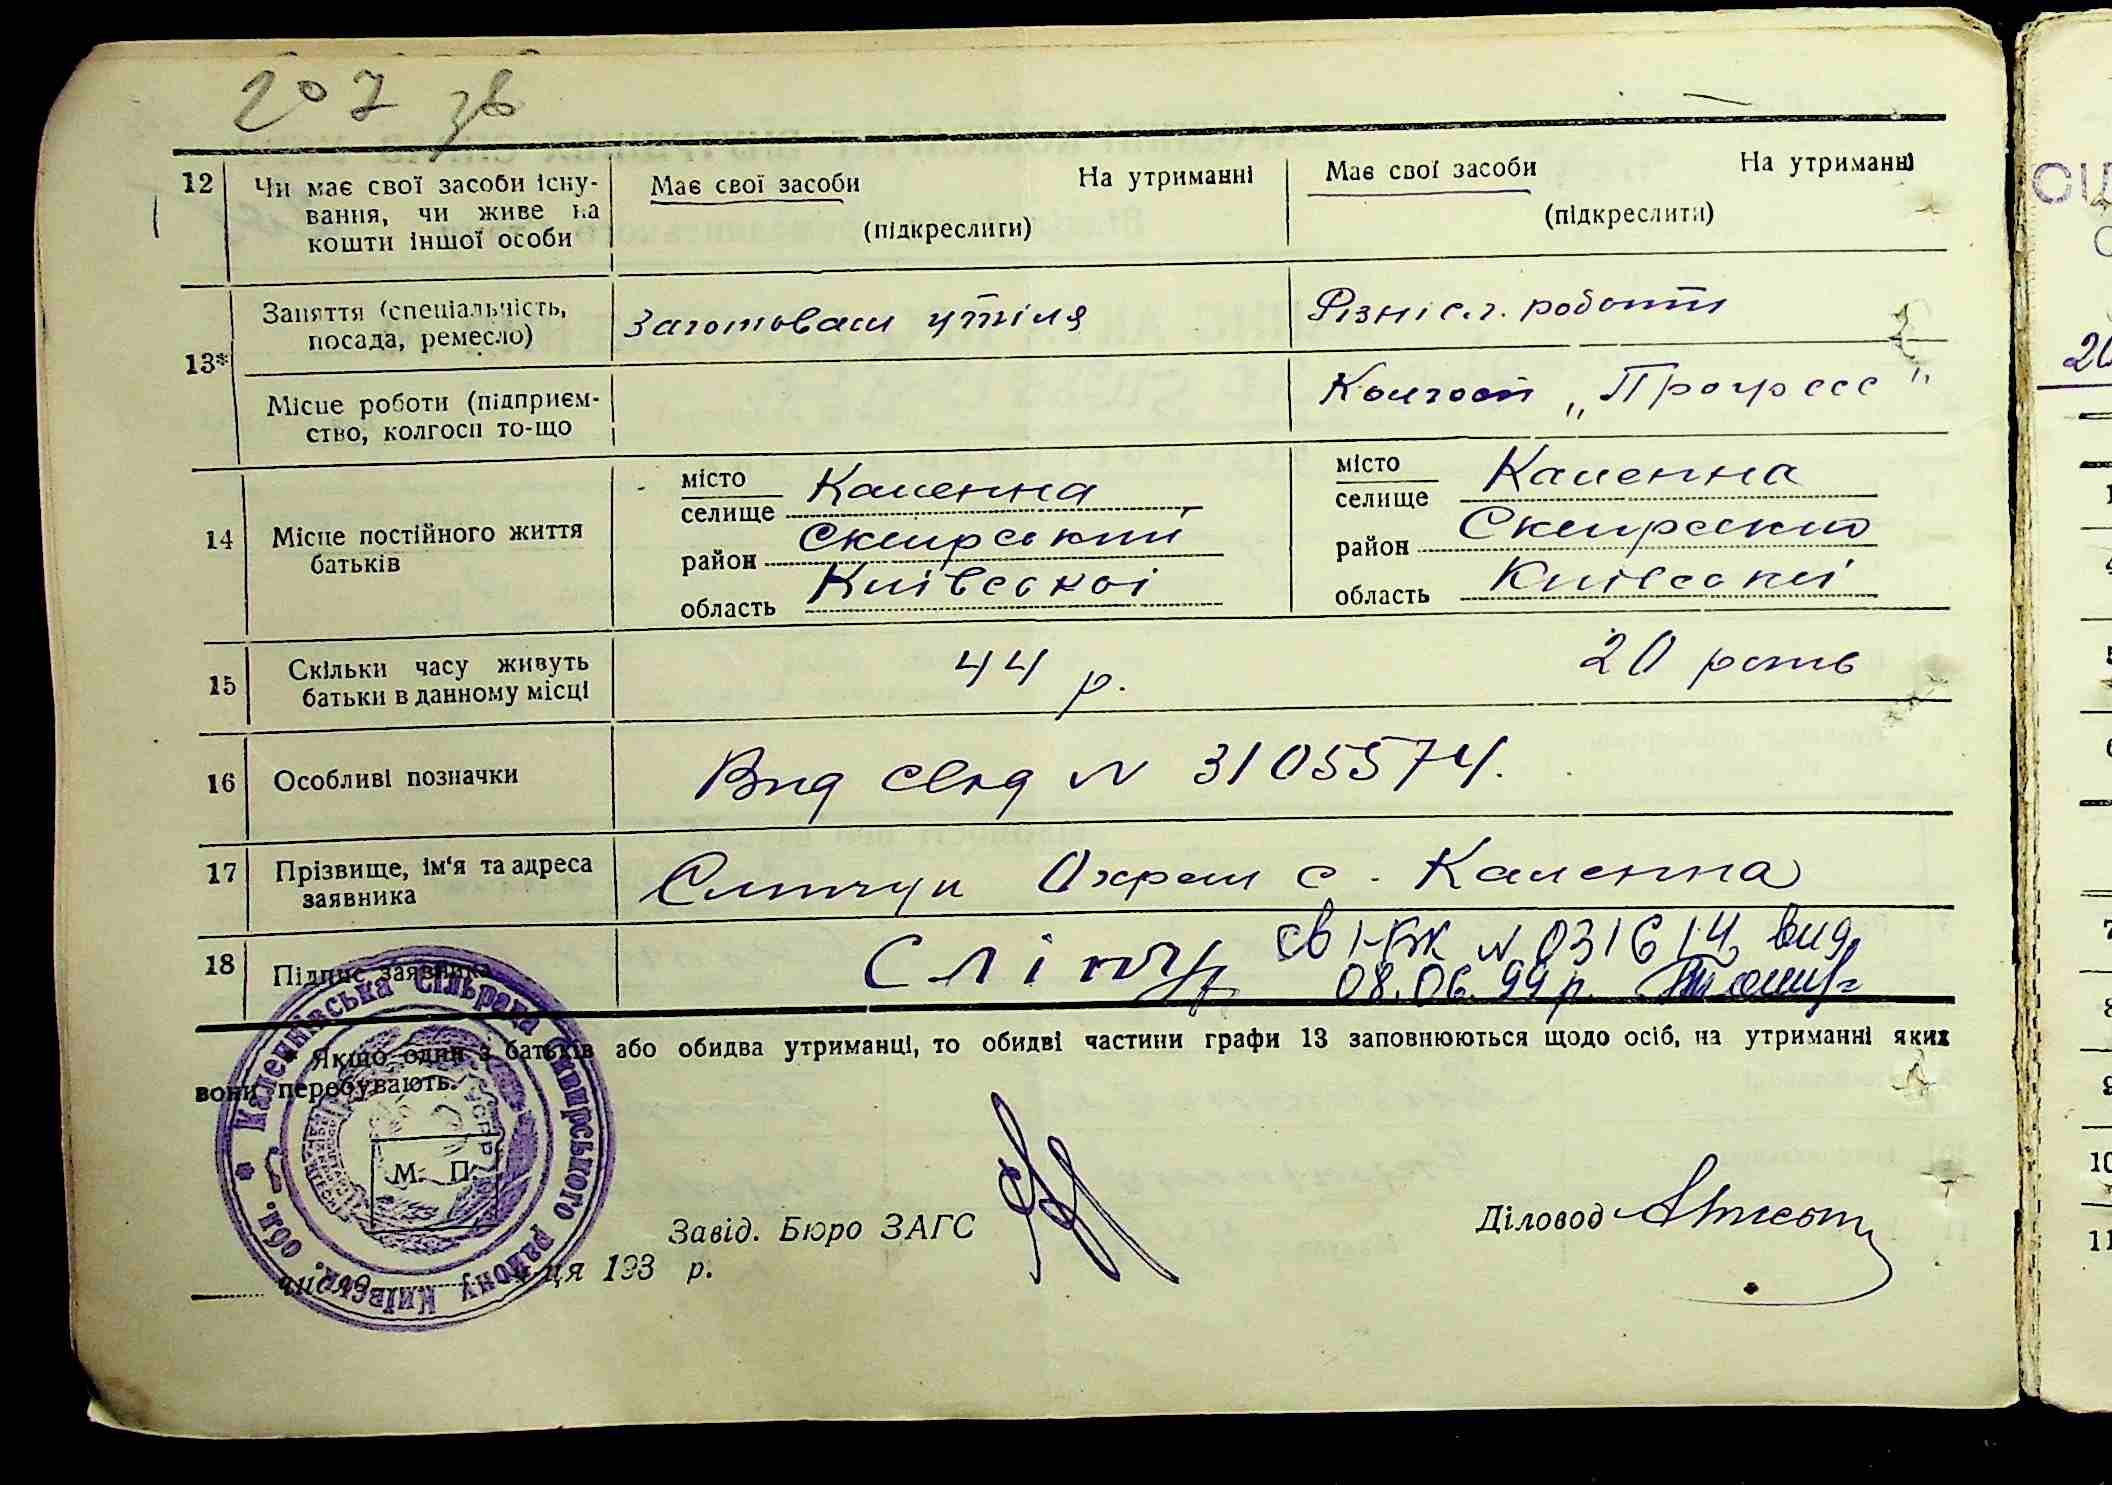 207 зв
12 Чи має свої засоби існу-
вання, чи живе на
кошти іншої особи
Має свої засоби На утриманні
(підкреслити)
Має свої засоби На утриманні
(підкреслити)
13*
Заняття (спеціальність,
посада, ремесло)
утіля
Різні с.г. роботи
Місце роботи (підприєм-
ство, колгосп то-що
Колгосп „Прогресс"
14 Місце постійного життя
батьків
місто
селище Каленна
район Сквирський
область Київської
місто
селище Каленна
район
область
15 Скільки часу живуть
батьки в данному місці
44 р.
20 років
16 Особливі позначки
Вид свід N 3105574.
17 Прізвище, ім'я та адреса
заявника
Охрем с. Каленна
18 Підпис заявника
Сліпчук
св І-БК N 031614 вид
08.06.99 р.
* Якщо один з батьків або обидва утриманці, то обидві частини графи 13 заповнюються щодо осіб, на утриманні яких
вони перебувають.
Каленнівська Сільрада Сквирського району Київськ. обл.
УСРР
М. П.
Завід. Бюро ЗАГС
Діловод
193 р.
10
11